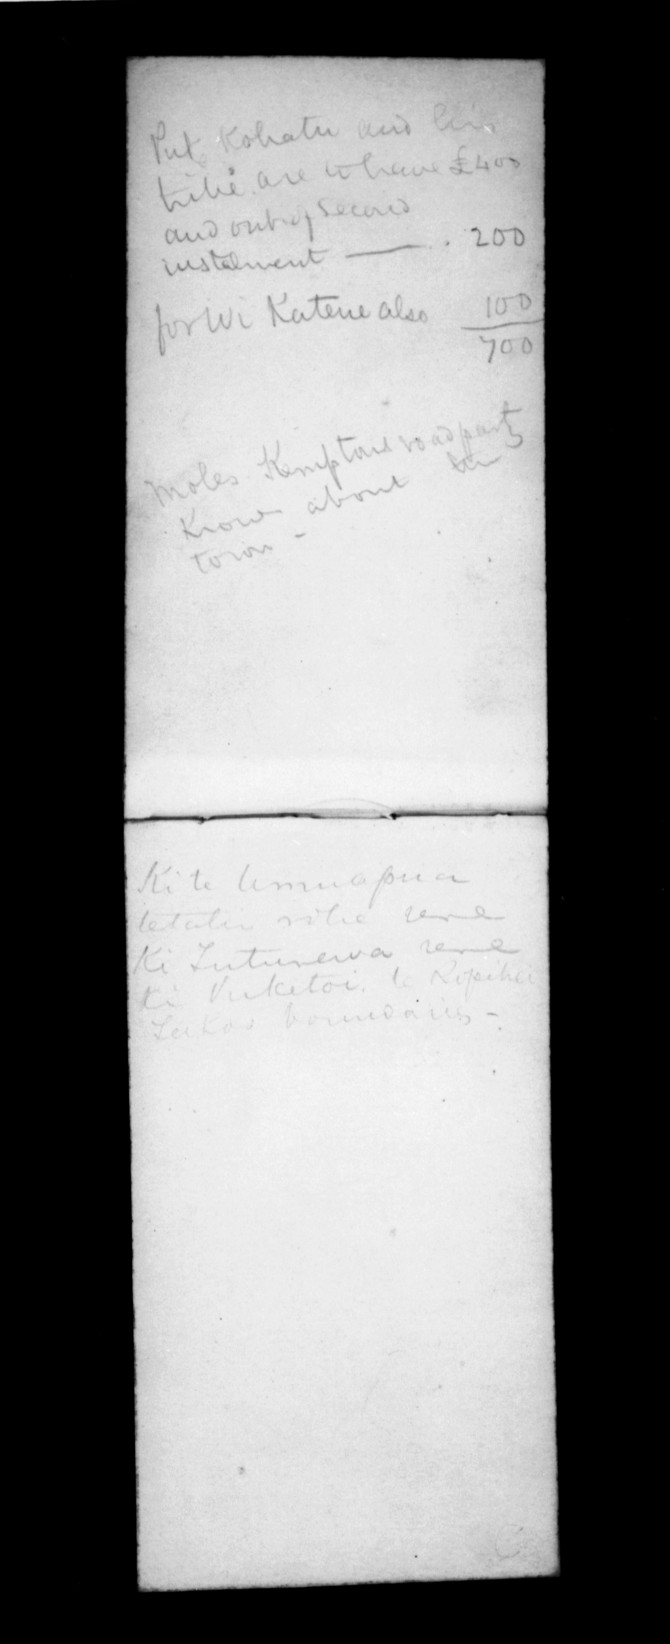 Puke Kohatu and his
tribe are to have £400
and out of Second
instalment — . 200
for Wi Katene also 100
700
Moles Kemptons road party
Knows about the
town -
Ki te Umuapua
tetahi rohe rere
Ki Tuturewa rere
Ki Puketoi. te Kopiha
Takos boundaries -